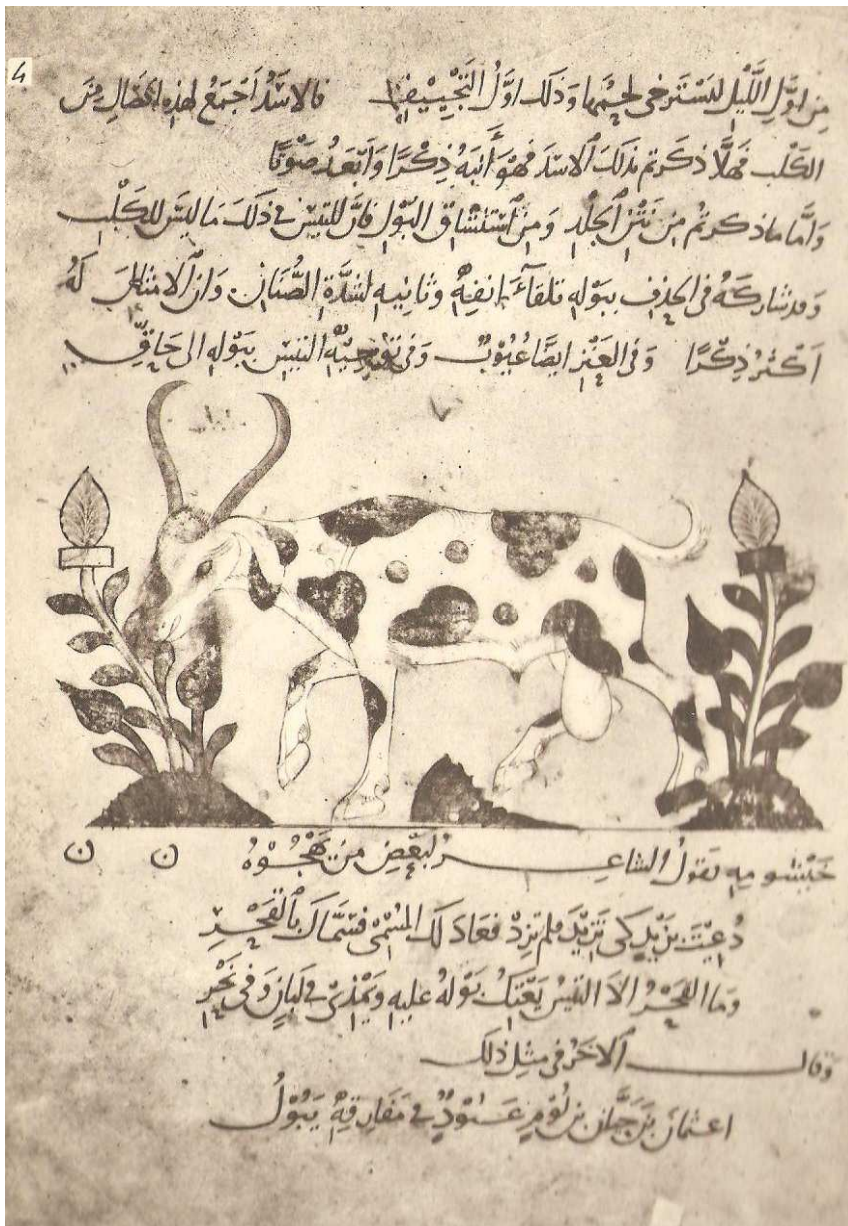 4
من اول الليل ليسترخى لحمها وذلك اول التجييف فالاسد اجمع لهذه الخصال من
الكلب فهلا ذكرتم بذلك الاسد فهو أنبه ذكرا وابعد صوتا
واما ما ذكرتم من نتن الجلد ومن استنشاق البول فان للتيس فى ذلك ما ليس للكلب
وقد شاركه فى الحذف ببوله تلقاء انفه لشدة الصنان وان الامثال له
اكثر ذكرا وفى العنز ايضا عيوب وفى توجيه التيس ببوله الى حاق
خيشومه يقول الشاعر لبعض من يهجوه ن ن
دعيت بزيد كى تزيد فلم تزد فعاد لك المسمى فسماك بالقحر
وما القحر الا التيس يعتك بوله عليه ويمذى فى لبان وفى نحر
وقال الاخر فى مثل ذلك
اعثمان بن حيان بن لوم عتود فى مفارقه يبول